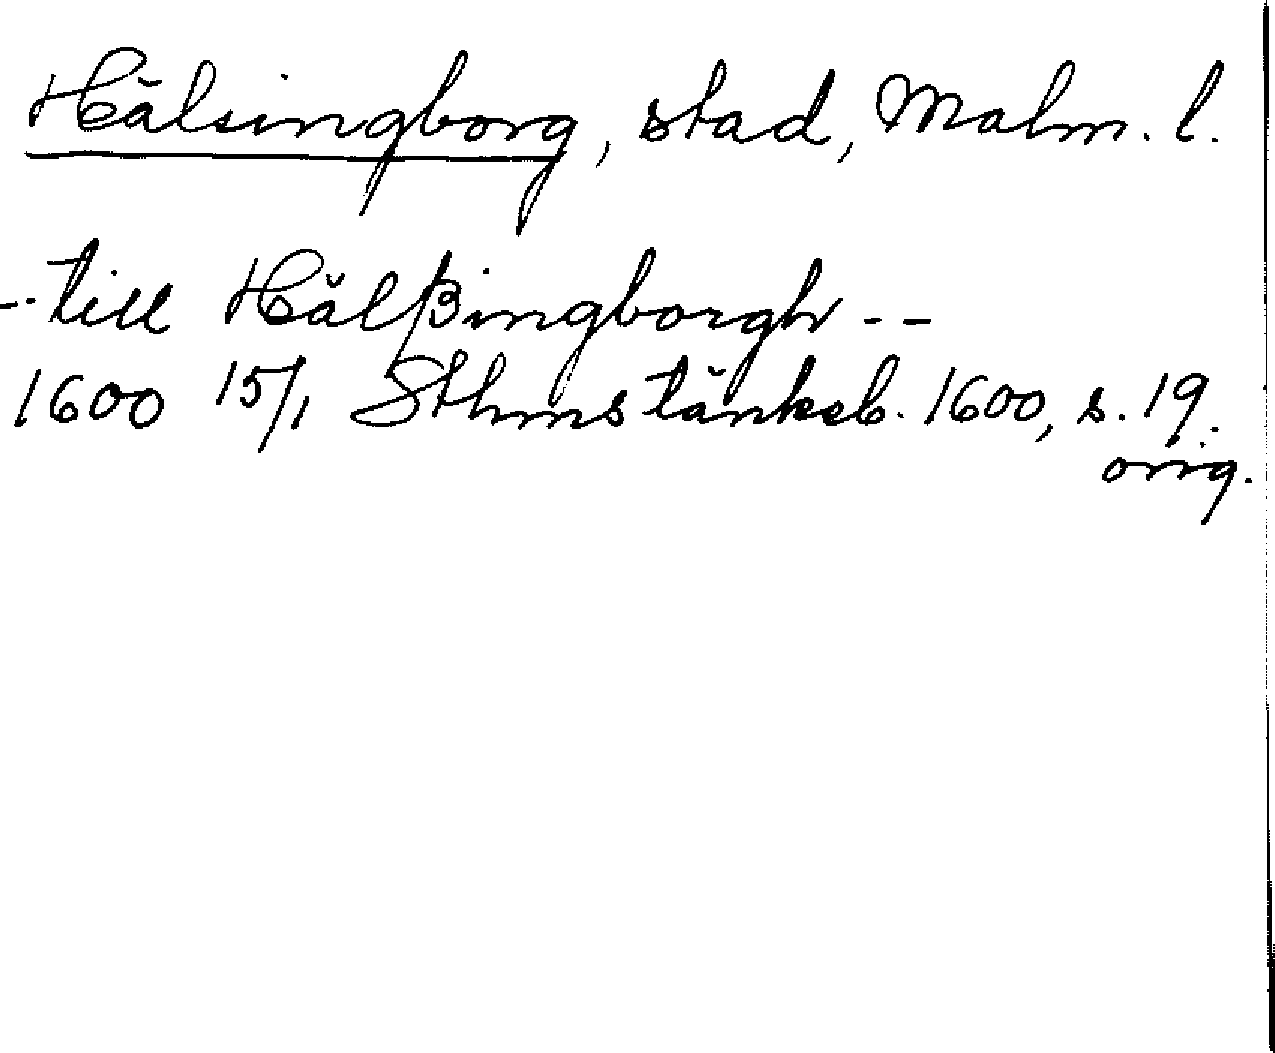 Hälsingborg, stad, Malm. l.
-- till Hälßingborgh --
1600 15/1 Sthms tänkeb. 1600, s. 19.
orig.